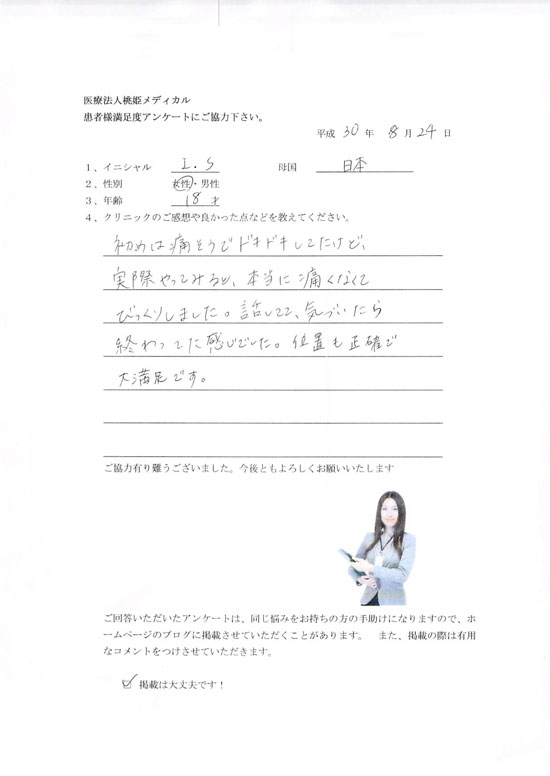 医療法人桃姫メディカル
患者様満足度アンケートにご協力下さい。
平成 30 年 8 月 24 日
1、イニシャル I.S 母国 日本
2、性別 女性・男性
3、年齢 18 才
4、クリニックのご感想や良かった点などを教えてください。
初めは痛そうでドキドキしてたけど、
実際やってみると、本当に痛くなくて
びっくりしました。話してて、気づいたら
終わってた感じでした。位置も正確で
大満足です。
ご協力有り難うございました。今後ともよろしくお願いいたします
ご回答いただいたアンケートは、同じ悩みをお持ちの方の手助けになりますので、ホ
ームページのブログに掲載させていただくことがあります。 また、掲載の際は有用
なコメントをつけさせていただきます。
☑ 掲載は大丈夫です！